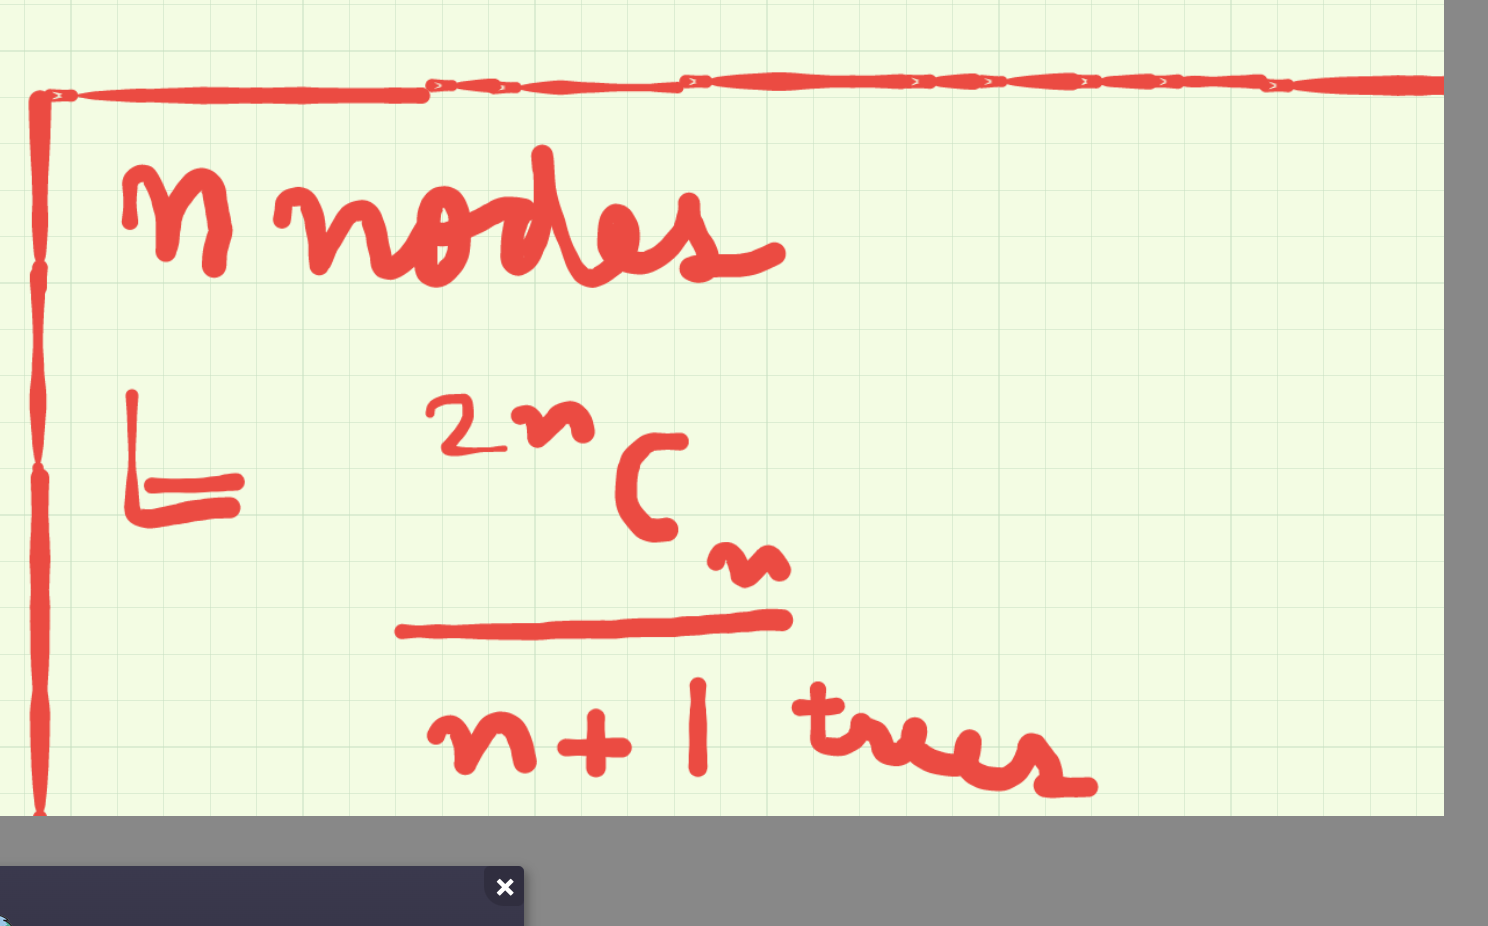 n nodes
2n C n
n+1 trees